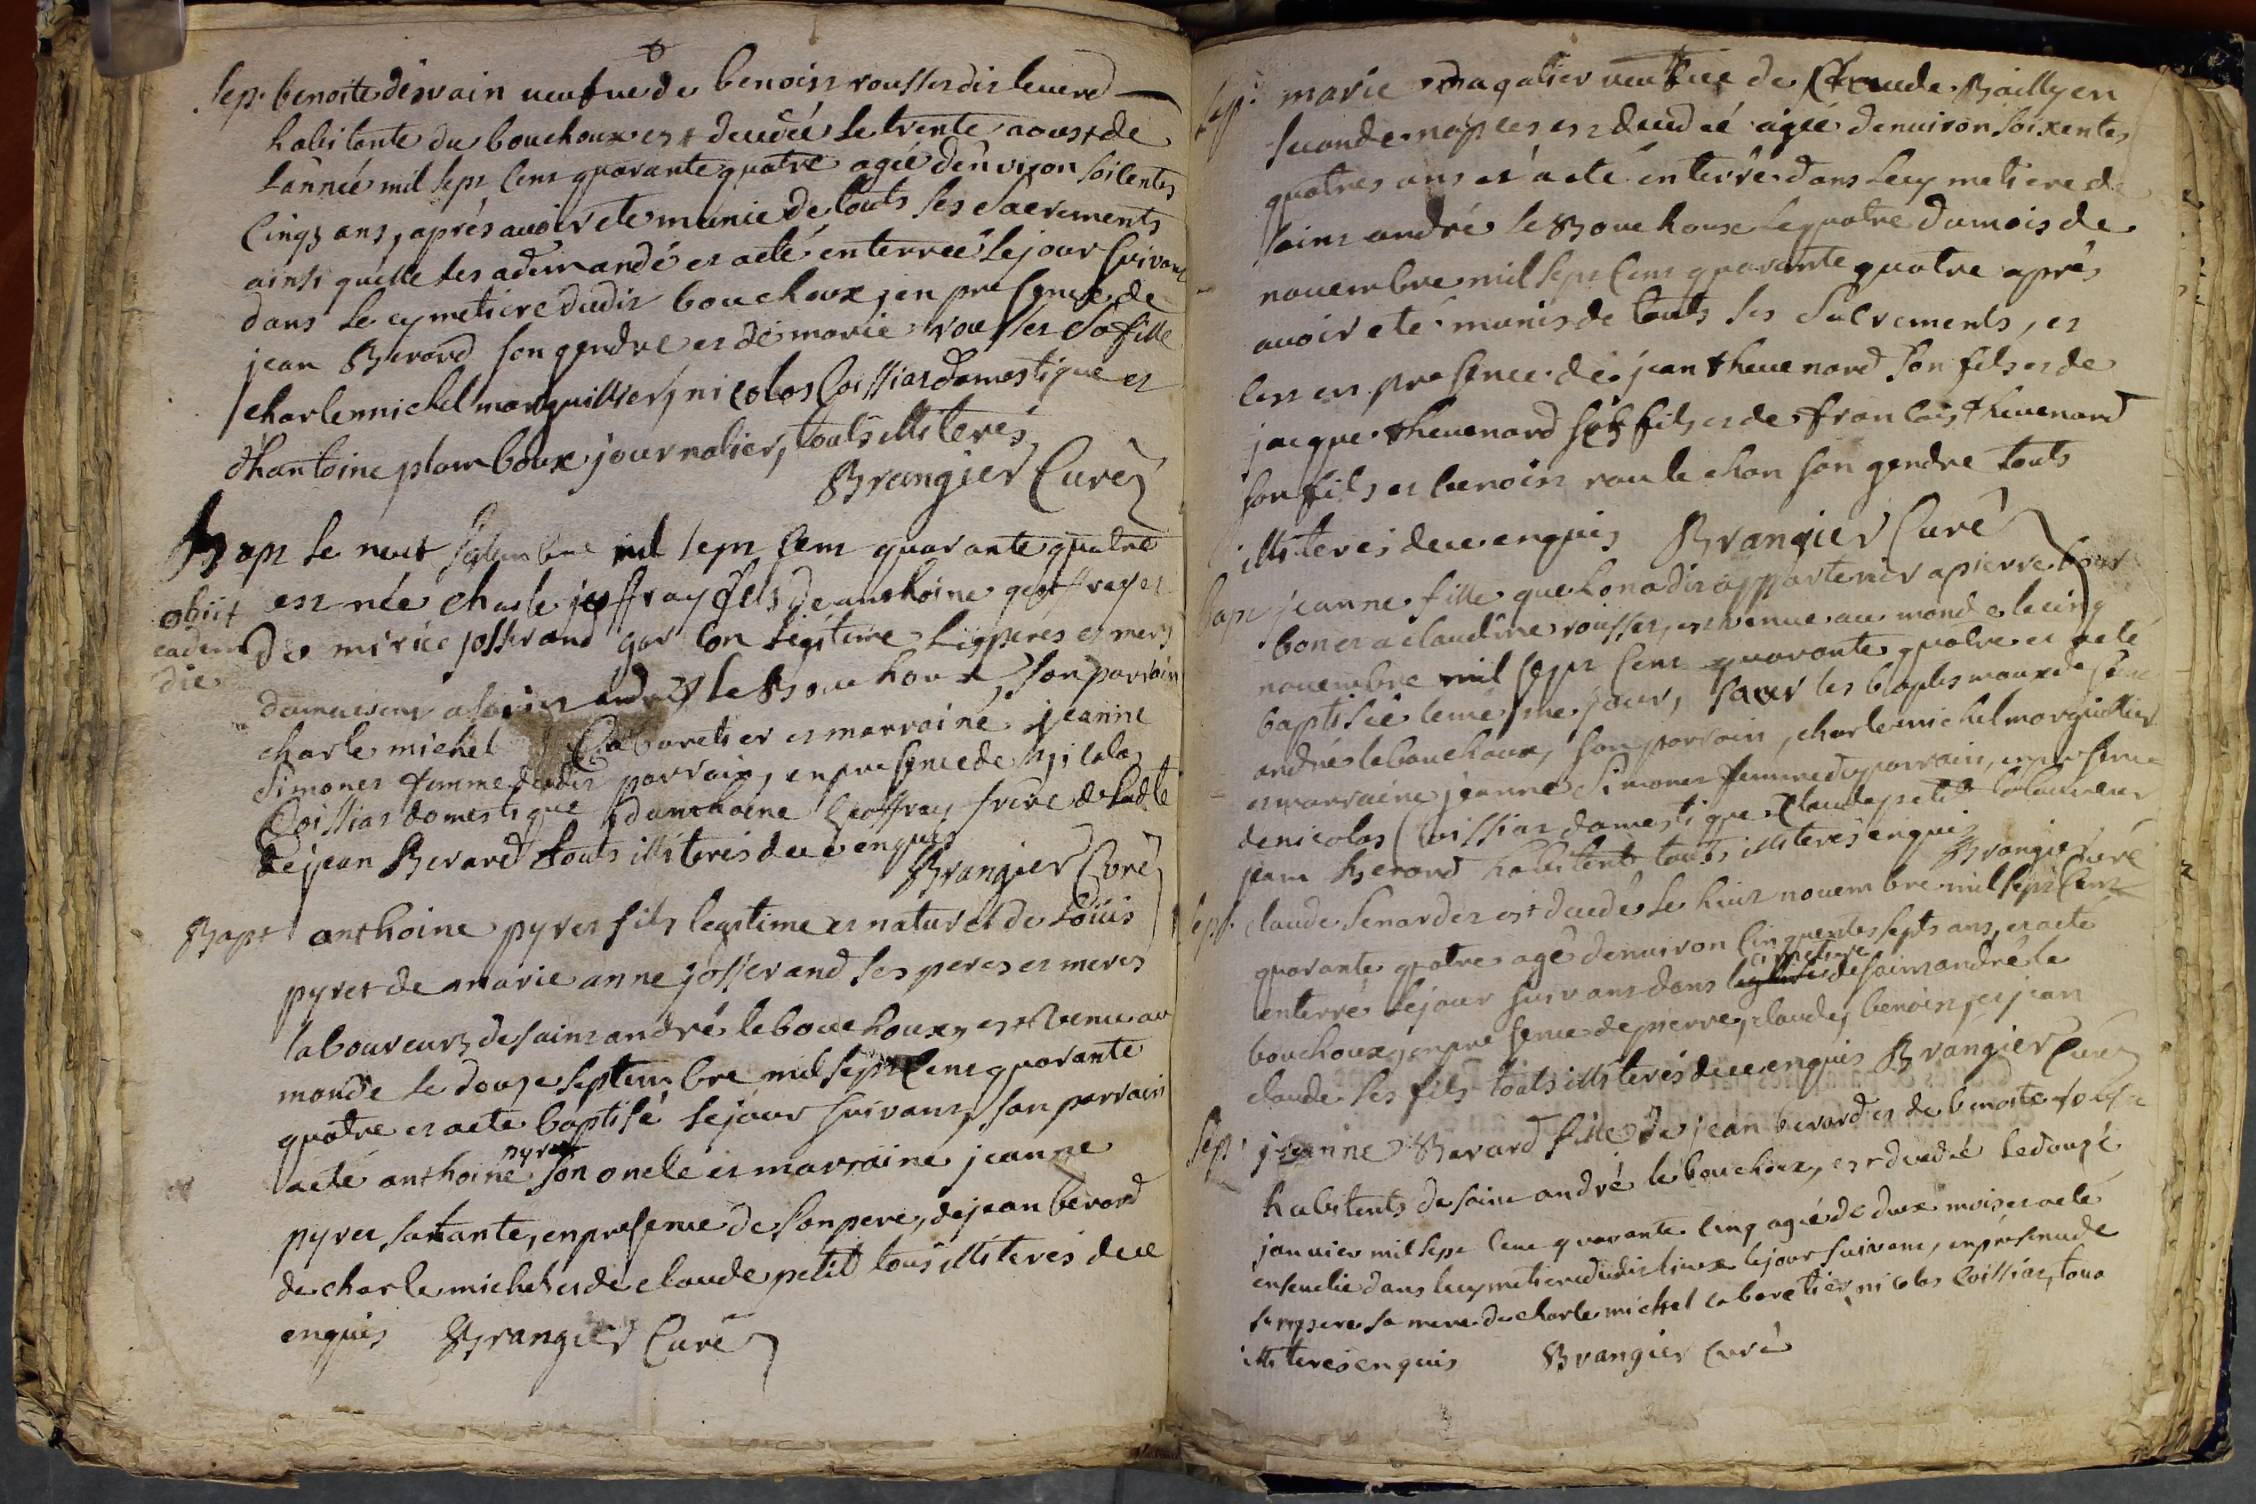 Sep. benoite desvain veufve de benoist rousset dit levere
habitante du bouchoux est decedée le trente aoust de
l'année mil sept cens quarante quatre agée d'environ soicentes
cinqs ans, aprés avoir eté munie de touts ses sacrements
ainsi quelle les a demandé et a eté enterreé le jour suivant
dans le cymetiere dudit bouchoux, en presence de
jean Berard son gendre et de marie rousset sa fille
charle michel marguillier, nicolas Coissiat domestique et
d'hantoine plamboux journalier, touts illiterés
Brangier Curé
Bapt le neuf septembre mil sept cens quarante quatre
est née charle jeoffray fils de anthoine geoffray et
obiit
eadem
die
de mirie josserand garcon legitime les peres et meres
demeurent a saint andré le Bouchoux, son parrain
charle michel Cabaretier et marraine jeanne
Simonet femme dudit parrain, en presence de Nicola
Coissiat domestique d'anthoine geoffray frere de ladte
de jean Berard touts illiterés de ce enquis
Brangier Curé
Bapt anthoine pyret fils legitime et naturel de Loüis
pyret de marie anne josserand ses peres et meres
laboureurs de saint andré le bouchoux, est venu au
monde le douze septembre mil sept cens quarante
quatre et a eté baptisé le jour suivant, son parrain
a eté anthoine pyret son oncle et marraine jeanne
pyret sa tante, en presence de son pere, de jean berard
de charle michel et de claude petit tous illiterés de ce
enquis Brangier Curé
Sep. marie magatier veufve de Claude Bailly en
seconde nopces est decedeé agée d'environ soixentes
quatres ans et a eté enterré dans le cymetiere de
saint andré le Bouchoux le quatre du mois de
novembre mil sept cens quarante quatre aprés
avoir eté munis de touts ses sacrements, et
ces en presence de jean thevenard son fils et de
jacque thevenard son fils et de francois thevenard
son fils et benoist rault son gendre touts
illiterés de ce enquis Brangier Curé
Bapt jeanne fille que l'on a dit appartenir a pierre
bonet a claudine rousset, est venue au monde le cinq
novembre mil sept cens quarante quatre et a eté
baptisée le même jour, sur les baptismaux de saint
andré le bouchoux, son parrain, charle michel marguillier
et marraine jeanne Simonet femme dudit parrain, en presence
de nicolas Coissiat domestique Claude petit laboureur
jean berard habitents touts illiterés enquis
Brangier Curé
sep. claude Senardet est decedé le huit novembre mil sept cens
quarante quatre agé d'environ cinquentes septs ans, et a eté
enterré le jour suivant dans cimetiere de saint andré le
bouchoux, en presence de pierre, claude, benoist, et jean
claude ses fils touts illiterés de ce enquis Brangier Curé
Sep. jeanne Berard fille de jean berard et de benoite
habitents de saint andré le bouchoux, est decedée le douze
janvier mil sept cens quarante cinq agée de deux mois et a eté
ensevelie dans le cymetiere dudit lieux le jour suivant, en presence de
son pere sa mere de charle michel cabaretier, nicolas Coissiat, tous
illiterés enquis Brangier curé